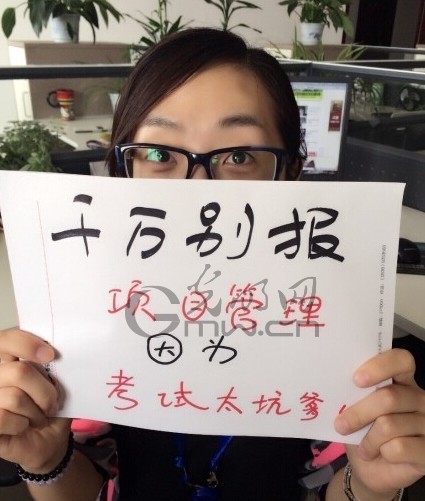 千万别报
项目管理
光明网
Gmw.cn
因为
考试太坑爹!